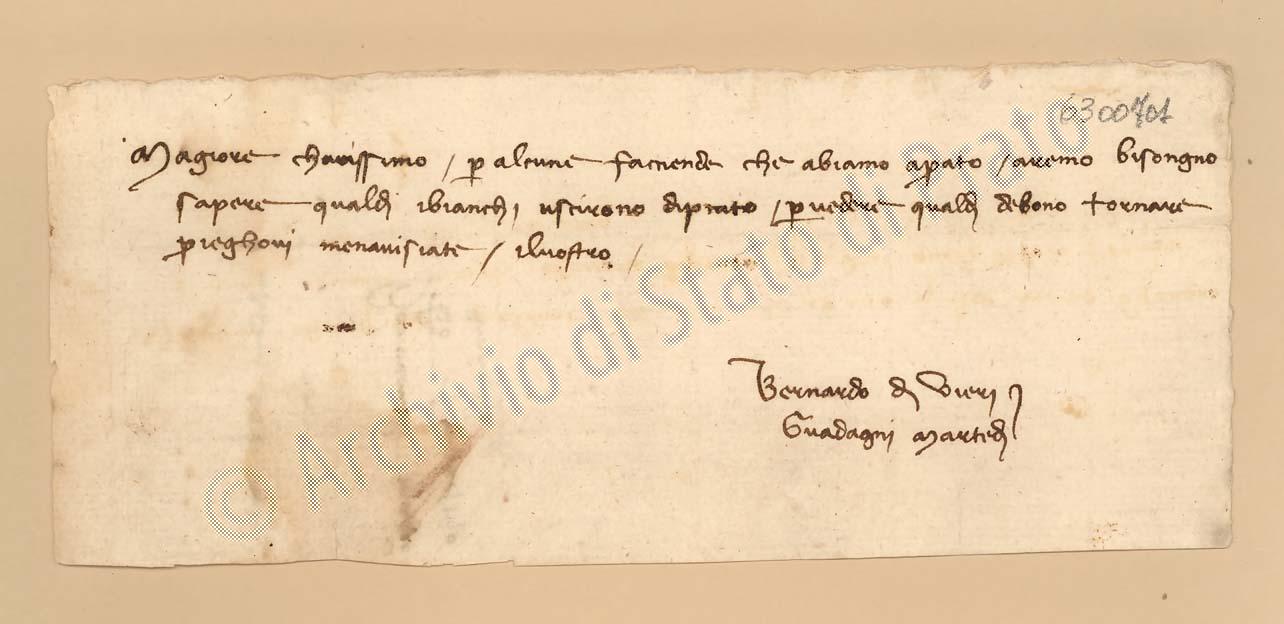 6300701
Magiore charissimo / p alcune faciende che abiamo aprato / aremo bisongno
sapere qualdi ibianchi uscirono diprato / p vedere qualdi debono tornare
prieghovi menavisiate / ilvostro /
Bernardo di Vieri
Guadagni Martedi
© Archivio di Stato di Prato